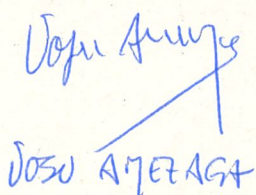 Josu Amezaga
JOSU AMEZAGA